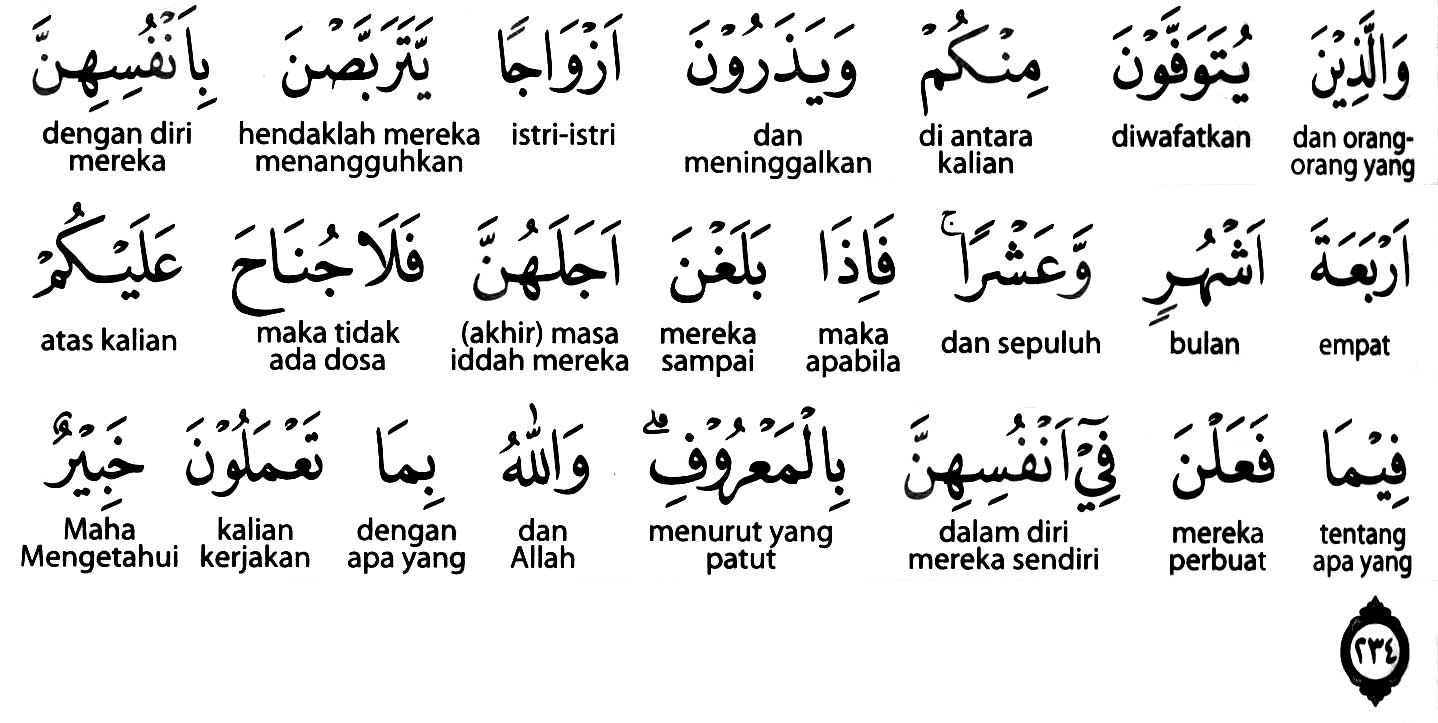 وَالَّذِيْنَ يُتَوَفَّوْنَ مِنْكُمْ وَيَذَرُوْنَ اَزْوَاجًا يَّتَرَبَّصْنَ بِاَنْفُسِهِنَّ
dan orang- diwafatkan di antara dan istri-istri hendaklah mereka dengan diri
orang yang kalian meninggalkan menangguhkan mereka
اَرْبَعَةَ اَشْهُرٍ وَّعَشْرًاۚ فَاِذَا بَلَغْنَ اَجَلَهُنَّ فَلَا جُنَاحَ عَلَيْكُمْ
empat bulan dan sepuluh maka mereka (akhir) masa maka tidak atas kalian
apabila sampai iddah mereka ada dosa
فِيْمَا فَعَلْنَ فِيْٓ اَنْفُسِهِنَّ بِالْمَعْرُوْفِۗ وَاللّٰهُ بِمَا تَعْمَلُوْنَ خَبِيْرٌ
tentang mereka dalam diri menurut yang dan dengan kalian Maha
apa yang perbuat mereka sendiri patut Allah apa yang kerjakan Mengetahui
٢٣٤